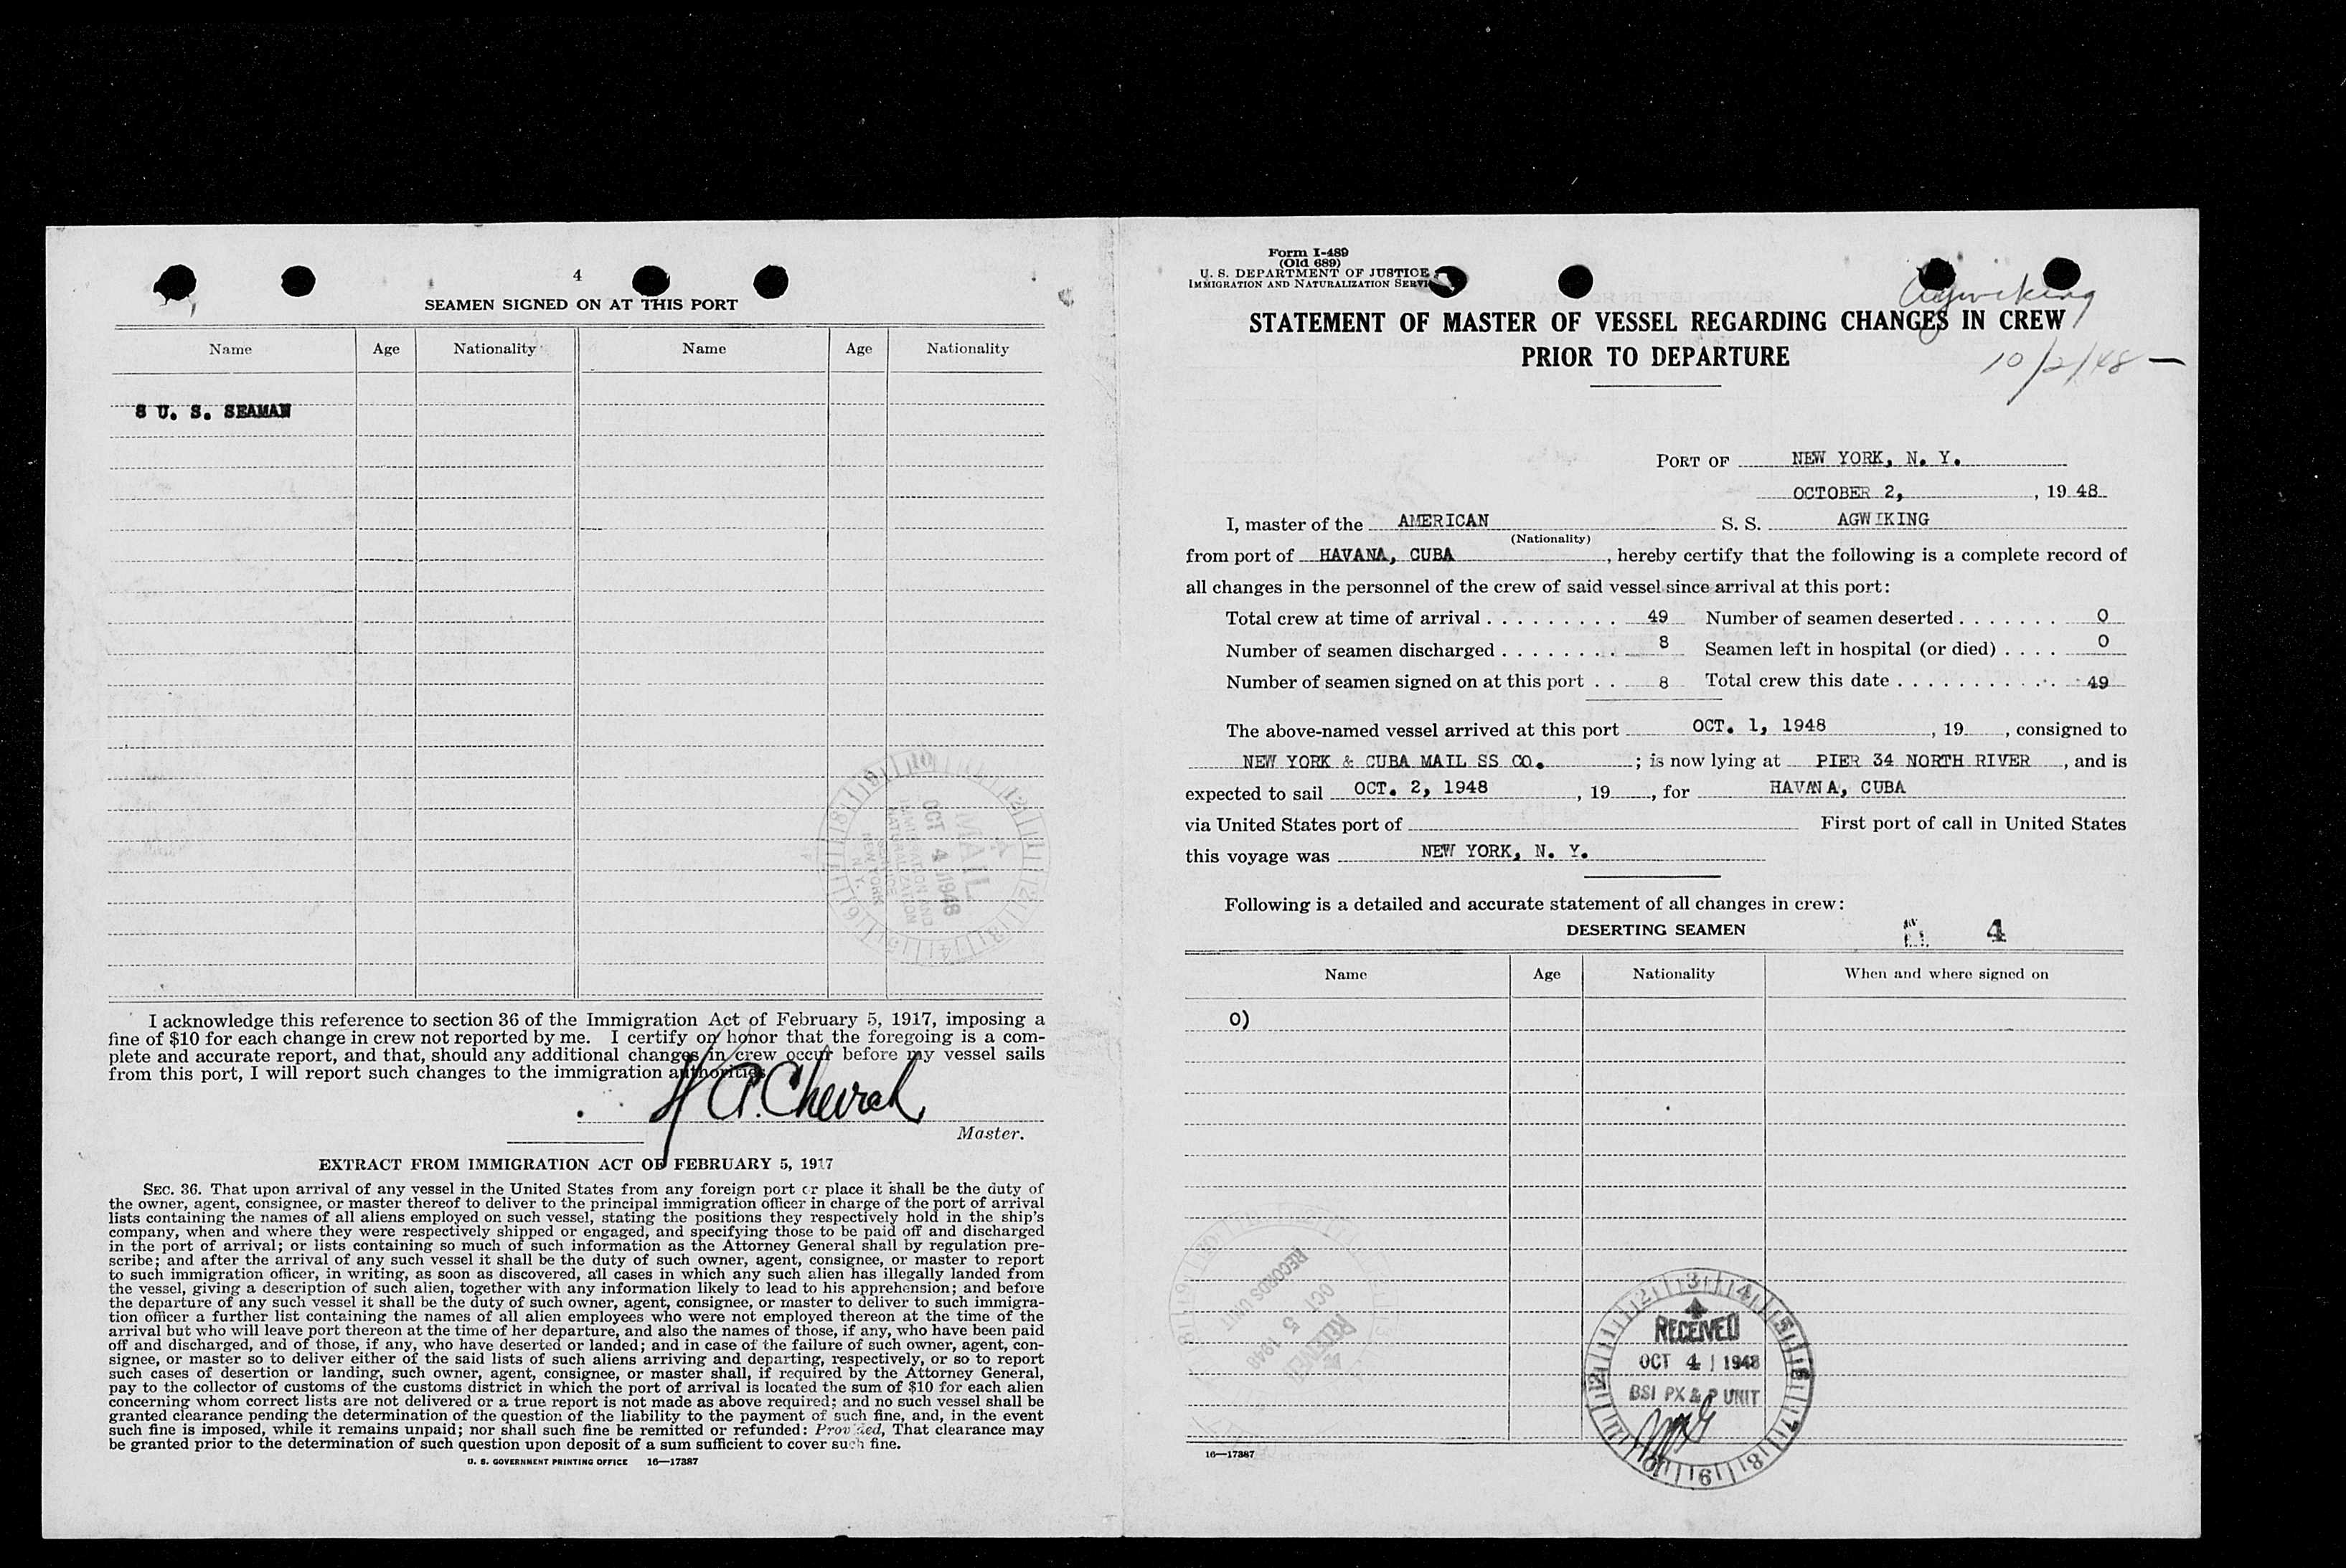 4
SEAMEN SIGNED ON AT THIS PORT
Name Age Nationality Name Age Nationality
8 U. S. SEAMAN
MAIL
OCT 4 1948
IMMIGRATION AND
NATURALIZATION
SERVICE
NEW YORK
N.Y.
I acknowledge this reference to section 36 of the Immigration Act of February 5, 1917, imposing a
fine of $10 for each change in crew not reported by me. I certify on honor that the foregoing is a com-
plete and accurate report, and that, should any additional changes in crew occur before my vessel sails
from this port, I will report such changes to the immigration authorities.
Master.
EXTRACT FROM IMMIGRATION ACT OF FEBRUARY 5, 1917
SEC. 36. That upon arrival of any vessel in the United States from any foreign port or place it shall be the duty of
the owner, agent, consignee, or master thereof to deliver to the principal immigration officer in charge of the port of arrival
lists containing the names of all aliens employed on such vessel, stating the positions they respectively hold in the ship's
company, when and where they were respectively shipped or engaged, and specifying those to be paid off and discharged
in the port of arrival; or lists containing so much of such information as the Attorney General shall by regulation pre-
scribe; and after the arrival of any such vessel it shall be the duty of such owner, agent, consignee, or master to report
to such immigration officer, in writing, as soon as discovered, all cases in which any such alien has illegally landed from
the vessel, giving a description of such alien, together with any information likely to lead to his apprehension; and before
the departure of any such vessel it shall be the duty of such owner, agent, consignee, or master to deliver to such immigra-
tion officer a further list containing the names of all alien employees who were not employed thereon at the time of the
arrival but who will leave port thereon at the time of her departure, and also the names of those, if any, who have been paid
off and discharged, and of those, if any, who have deserted or landed; and in case of the failure of such owner, agent, con-
signee, or master so to deliver either of the said lists of such aliens arriving and departing, respectively, or so to report
such cases of desertion or landing, such owner, agent, consignee, or master shall, if required by the Attorney General,
pay to the collector of customs of the customs district in which the port of arrival is located the sum of $10 for each alien
concerning whom correct lists are not delivered or a true report is not made as above required; and no such vessel shall be
granted clearance pending the determination of the question of the liability to the payment of such fine, and, in the event
such fine is imposed, while it remains unpaid; nor shall such fine be remitted or refunded: Provided, That clearance may
be granted prior to the determination of such question upon deposit of a sum sufficient to cover such fine.
U. S. GOVERNMENT PRINTING OFFICE 16—17387
Form I-489
(Old 689)
U. S. DEPARTMENT OF JUSTICE
IMMIGRATION AND NATURALIZATION SERVI
Agwiking
STATEMENT OF MASTER OF VESSEL REGARDING CHANGES IN CREW
PRIOR TO DEPARTURE
10/2/48 —
PORT OF NEW YORK, N. Y.
OCTOBER 2, , 19 48
I, master of the AMERICAN S. S. AGWIKING
(Nationality)
from port of HAVANA, CUBA , hereby certify that the following is a complete record of
all changes in the personnel of the crew of said vessel since arrival at this port:
Total crew at time of arrival . . . . . . . . . 49 Number of seamen deserted . . . . . . . 0
Number of seamen discharged . . . . . . . . 8 Seamen left in hospital (or died) . . . . 0
Number of seamen signed on at this port . . 8 Total crew this date . . . . . . . . . . . . 49
The above-named vessel arrived at this port OCT. 1, 1948 , 19 , consigned to
NEW YORK & CUBA MAIL SS CO. ; is now lying at PIER 34 NORTH RIVER , and is
expected to sail OCT. 2, 1948 , 19 , for HAVANA, CUBA
via United States port of First port of call in United States
this voyage was NEW YORK, N. Y.
Following is a detailed and accurate statement of all changes in crew:
DESERTING SEAMEN 4
Name Age Nationality When and where signed on
0)
RECORDS UNIT
OCT 5 1948
RECEIVED
RECEIVED
OCT 4 1948
BSI PX & P UNIT
16—17387